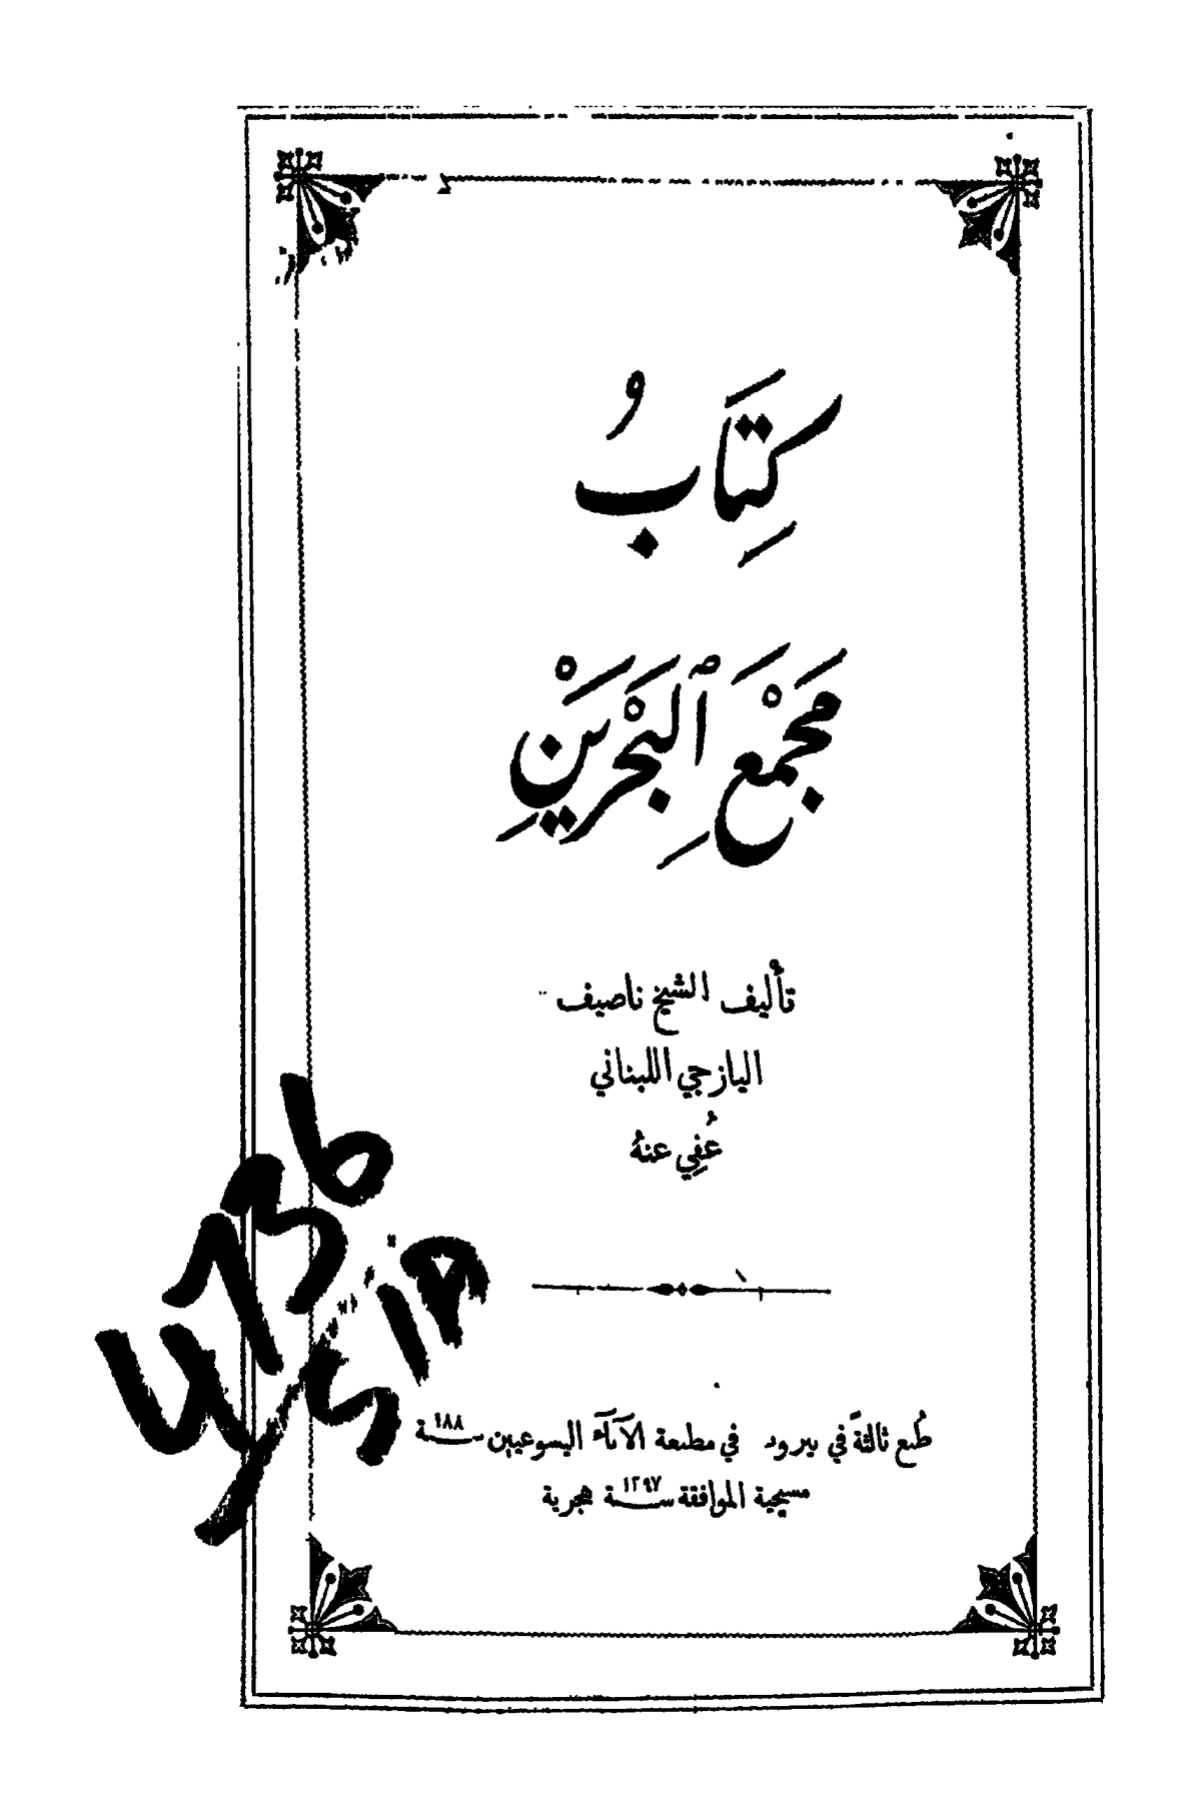 كِتَابُ
مَجْمَعِ ٱلْبَحْرَيْنِ
تأليف الشيخ ناصيف
اليازجي اللبناني
عُفِي عنهُ
طُبع ثالثةً في بيروت في مطبعة الآباء اليسوعيين سنة ١٨٨
مسيحية الموافقة سنة ١٢٩٧ هجرية